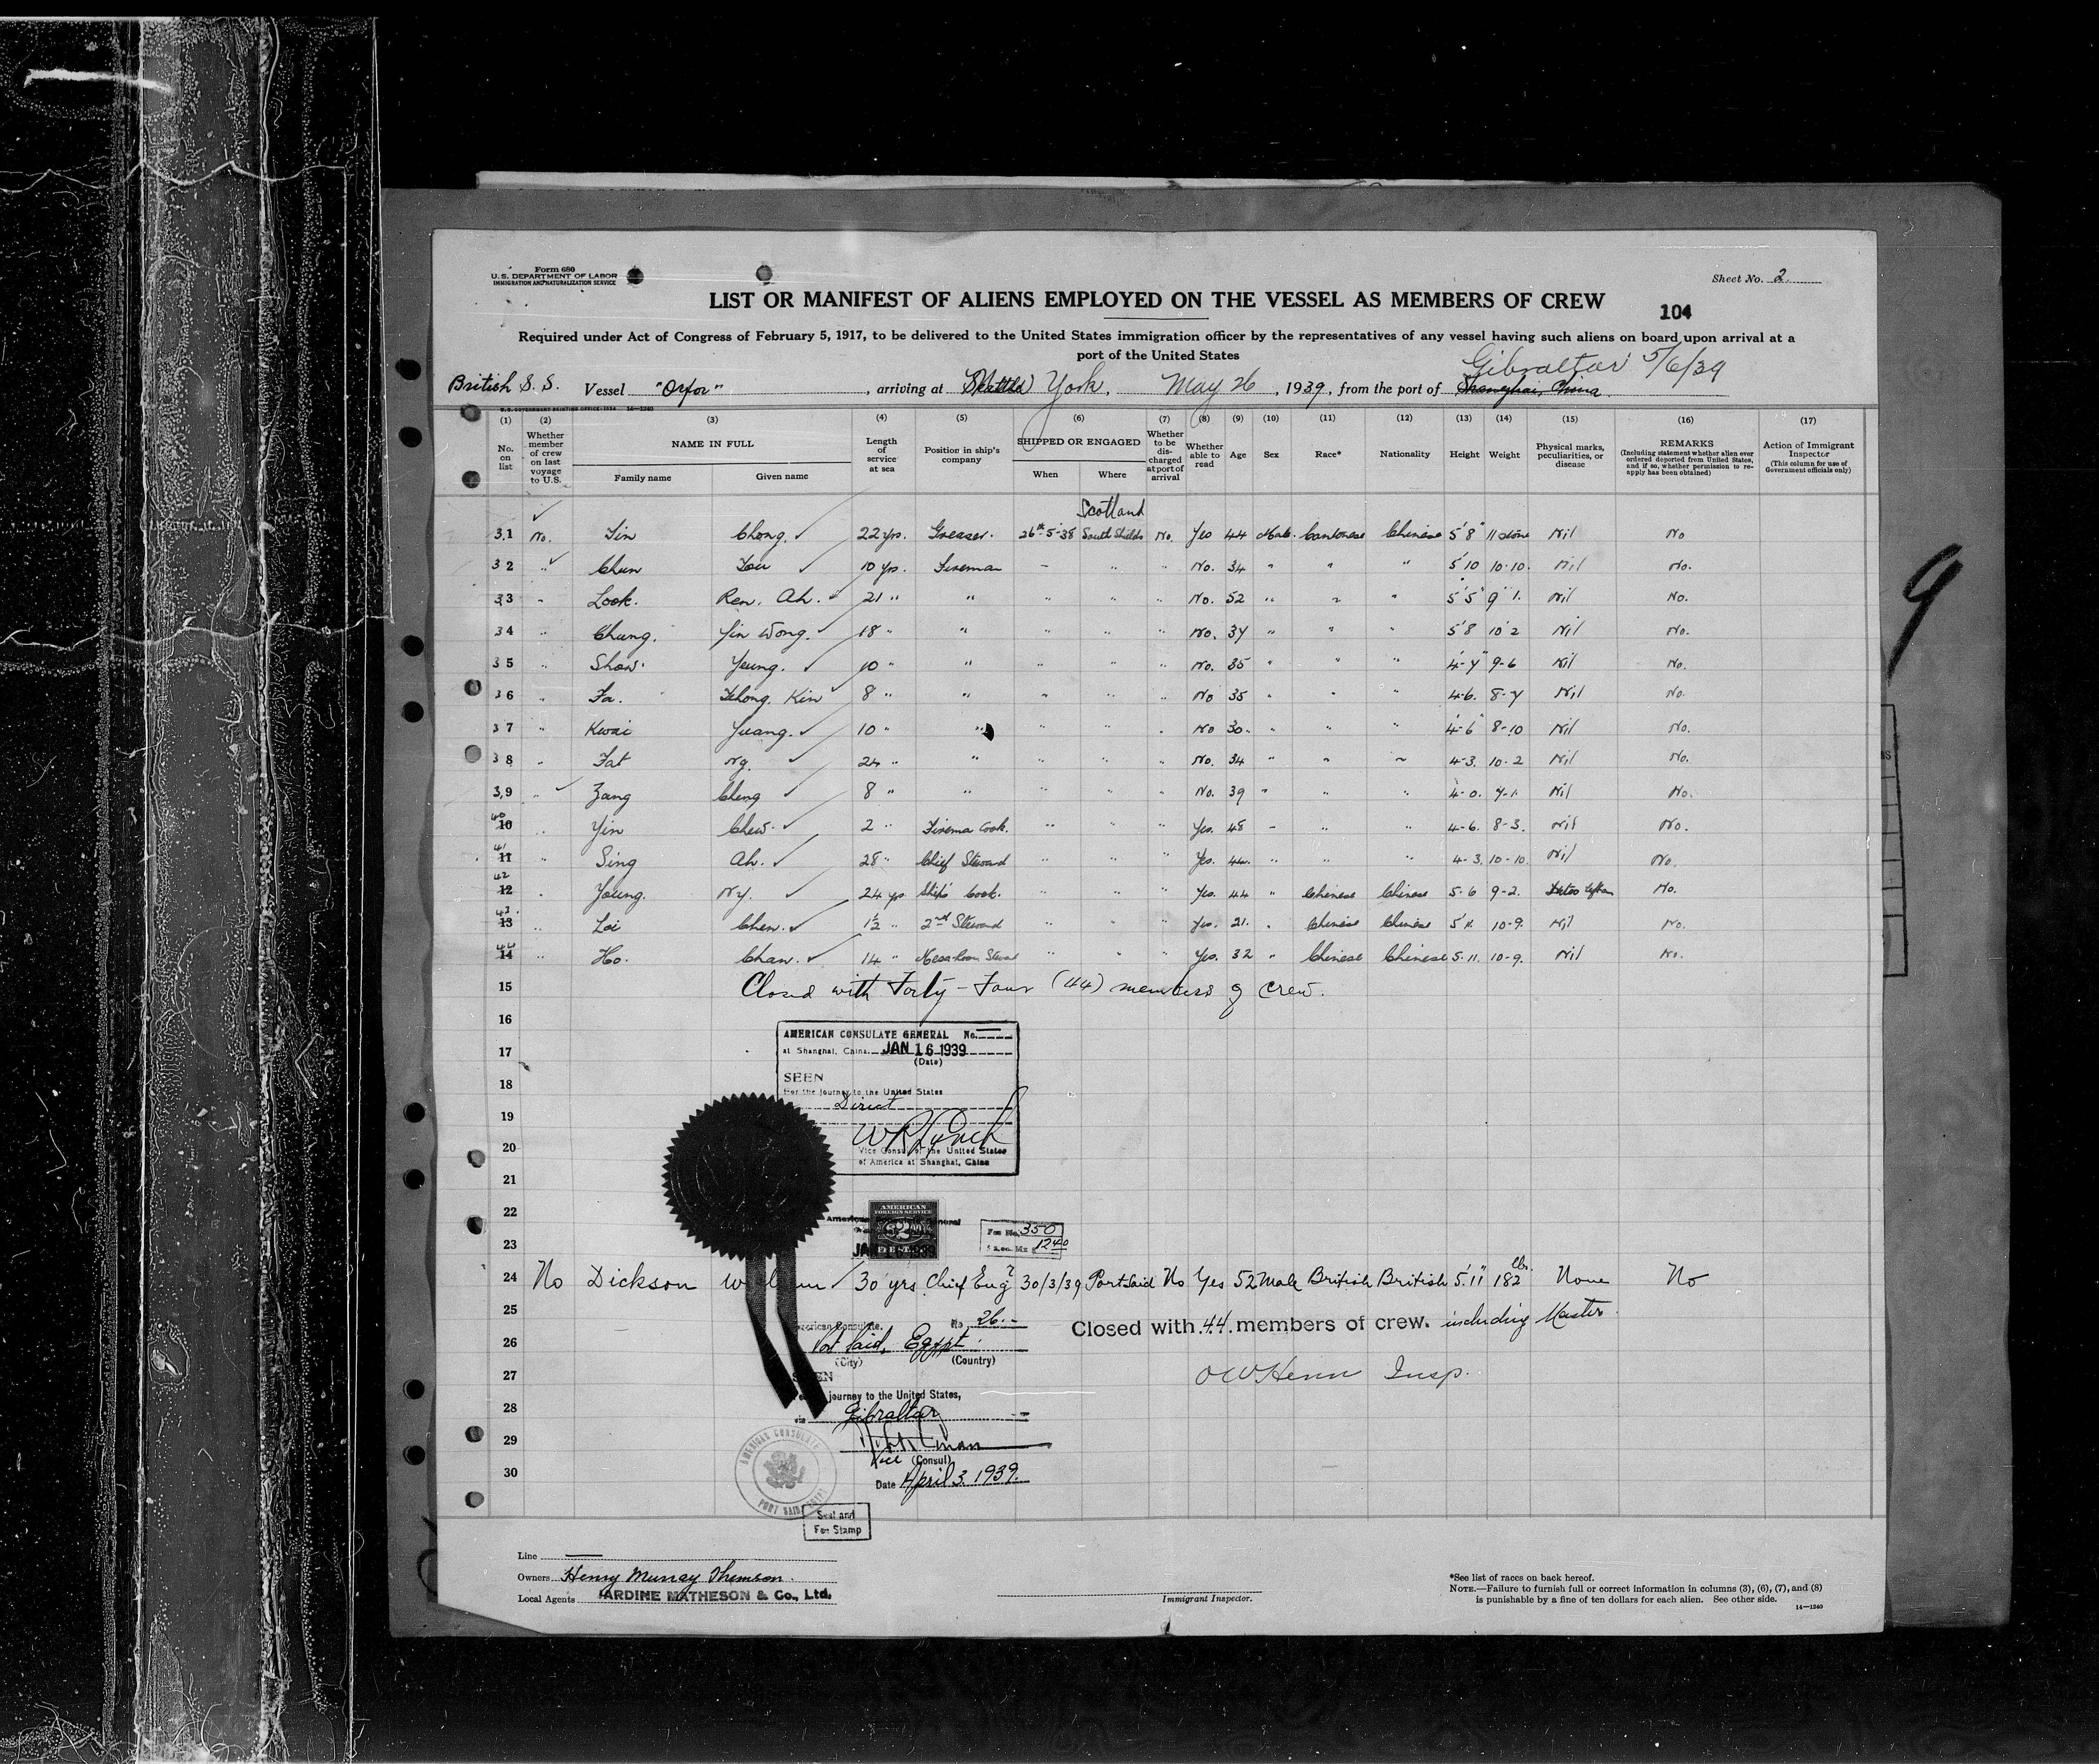 Form 680
U. S. DEPARTMENT OF LABOR
IMMIGRATION AND NATURALIZATION SERVICE
Sheet No. 2
LIST OR MANIFEST OF ALIENS EMPLOYED ON THE VESSEL AS MEMBERS OF CREW
104
Required under Act of Congress of February 5, 1917, to be delivered to the United States immigration officer by the representatives of any vessel having such aliens on board upon arrival at a
port of the United States
Gibraltar 5/6/39
British S. S. Vessel "Orfor", arriving at York, May 26, 1939, from the port of Shanghai, China
U.S. GOVERNMENT PRINTING OFFICE: 1934 14—1240
(1) (2) (3) (4) (5) (6) (7) (8) (9) (10) (11) (12) (13) (14) (15) (16) (17)
No. on list
Whether member of crew on last voyage to U.S.
NAME IN FULL
Family name Given name
Length of service at sea
Position in ship's company
SHIPPED OR ENGAGED
When Where
Whether to be discharged at port of arrival
Whether able to read
Age Sex Race* Nationality Height Weight
Physical marks, peculiarities, or disease
REMARKS
(Including statement whether alien ever ordered deported from United States, and if so, whether permission to reapply has been obtained)
Action of Immigrant Inspector
(This column for use of Government officials only)
Scotland
31 No. Chong. 22 yrs. Greaser. 26th-5-38 South Shields No. Yes 44 Male. Cantonese Chinese 5'8" 11 stone Nil No
32 " Chun 10 yrs. Fireman - " " No. 34 " " " 5'10 10-10. Nil No.
33 " Look. Ren. Ah. 21 " " " " " No. 52 " " " 5'5" 9'1. Nil No.
34 " Chung. Yin Wong. 18 " " " " " No. 37 " " " 5'8 10'2 Nil No.
35 " Show. Yeung. 10 " " " " " No. 35 " " " 4-7" 9-6 Nil No.
36 " Fa. Kin 8 " " " " " No 35 " " " 4-6. 8-7 Nil No.
37 " Kwai Yuang. 10 " " " " " No 30. " " " 4-6" 8-10 Nil No.
38 " Fat Ng. 24 " " " " " No. 34 " " " 4-3. 10-2 Nil No.
39 " Zang Cheng 8 " " " " " No. 39 " " " 4-0. 7-1. Nil No.
40 10 " Yin Chew. 2 " Firema Cook. " " " Yes. 48 - " " 4-6. 8-3. Nil No.
41 11 " Sing Ah. 28 " Chief Steward " " " Yes. 44. " " " 4-3. 10-10. Nil No.
42 12 " Young. Ny. 24 yrs Ship's Cook. " " " Yes. 44 " Chinese Chinese 5-6 9-2. No.
43 13 " Loi Chen. 1½ " 2nd Steward " " " Yes. 21. " Chinese Chinese 10-9. Nil No.
44 14 " Ho. Chan. 14 " Mess-Room " " " Yes. 32 " Chinese Chinese 5-11. 10-9. Nil No.
15 Closed with Forty-Four (44) members of crew.
16
AMERICAN CONSULATE GENERAL No.
17
at Shanghai, China. JAN 16 1939
(Date)
18
SEEN
For the journey to the United States
Direct
19
20
Vice Consul of the United States
of America at Shanghai, China
21
22
AMERICAN
FOREIGN SERVICE
23
JAN 16 1939
Fee No. 350
1240
24 No Dickson 30 yrs Chief Engr 30/3/39 Port Said No Yes 52 Male British British 5'.11" 182 lbs. None No
25
American Consulate. No 26.-
Closed with 44 members of crew. including Master
26
Port Said, Egypt.
(City) (Country)
27
SEEN
Insp.
journey to the United States,
28
via Gibraltar
29
Vice (Consul)
30
Date April 3. 1939.
AMERICAN CONSULATE
PORT SAID
Seal and
Fee Stamp
Line
Owners Henry Murray Thomson.
Local Agents JARDINE MATHESON & Co., Ltd.
Immigrant Inspector.
*See list of races on back hereof.
NOTE.—Failure to furnish full or correct information in columns (3), (6), (7), and (8)
is punishable by a fine of ten dollars for each alien. See other side.
14—1240
9